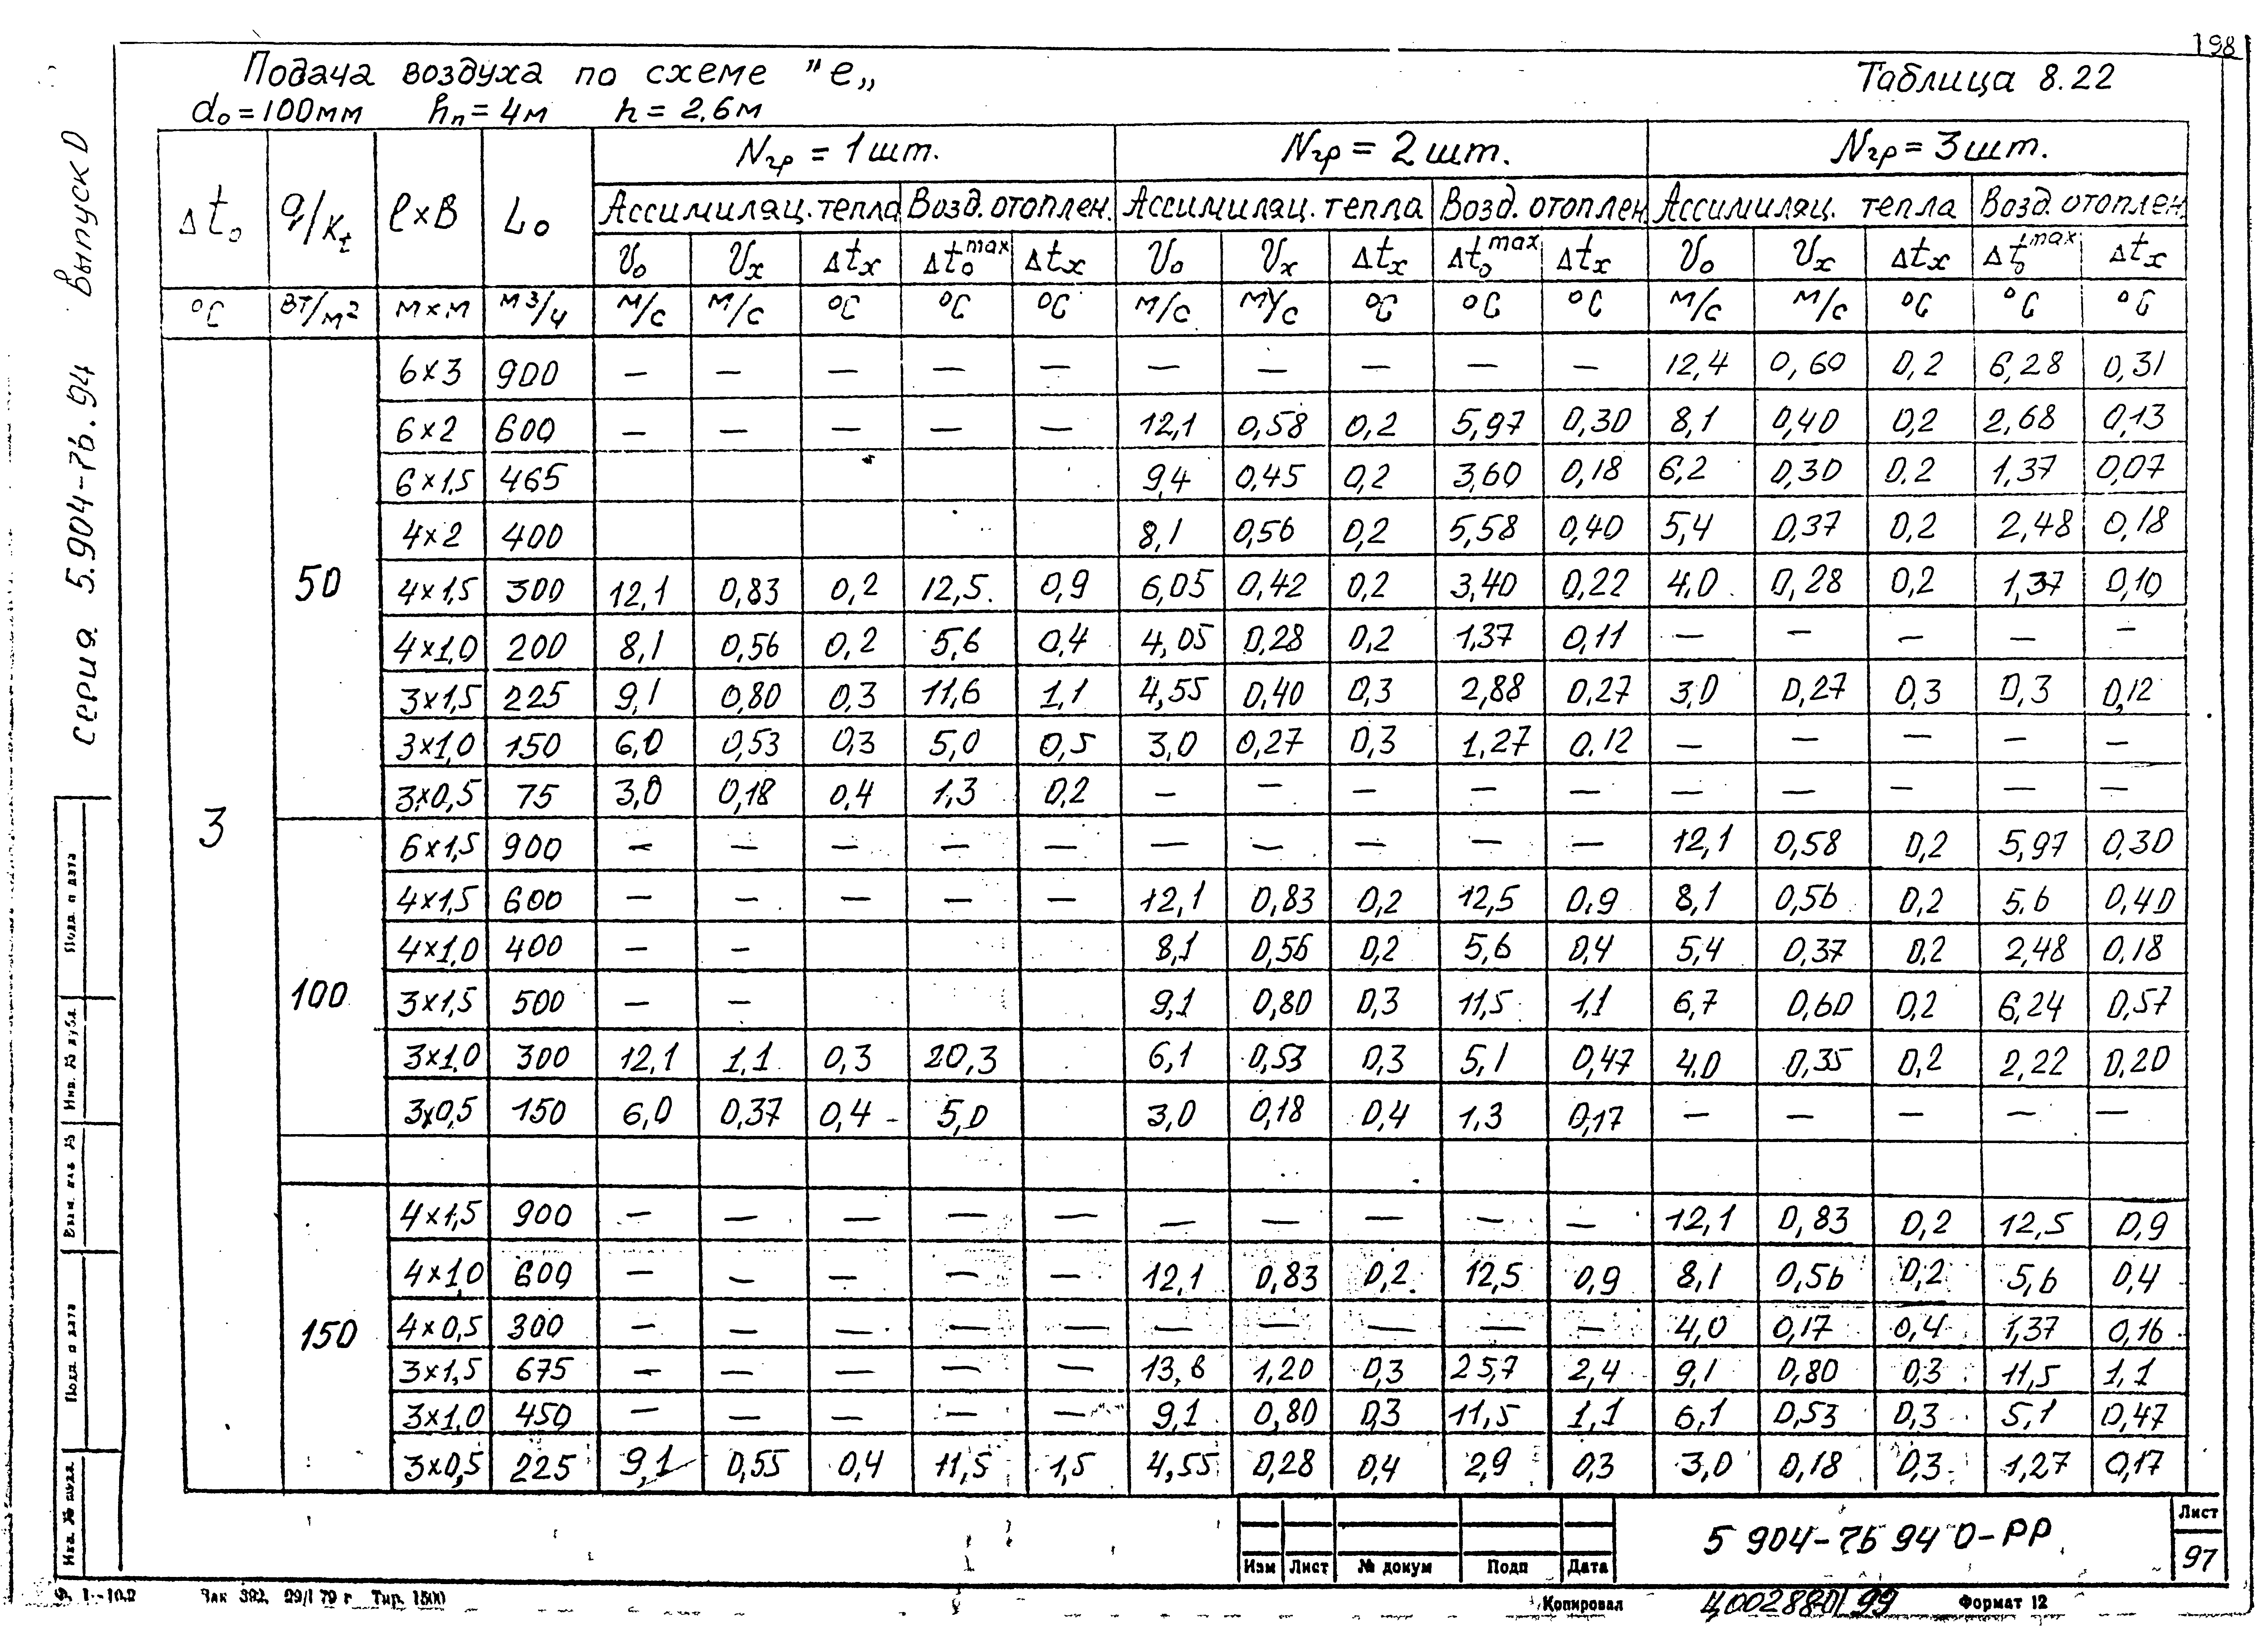 198
Подача воздуха по схеме "е„
Таблица 8.22
d₀ = 100мм hп = 4м h = 2,6м
серия 5.904-76.94 выпуск 0
Δt₀ q/Kt ℓ×B L₀ Nгр = 1 шт. Nгр = 2 шт. Nгр = 3 шт.
Ассимиляц. тепла Возд. отоплен. Ассимиляц. тепла Возд. отоплен Ассимиляц. тепла Возд. отоплен
V₀ Vx Δtx Δt₀max Δtx V₀ Vx Δtx Δt₀max Δtx V₀ Vx Δtx Δt₀max Δtx
°C Вт/м² м×м м³/ч м/с м/с °C °C °C м/с м/с °C °C °C м/с м/с °C °C °C
3
50
6×3 900 — — — — — — — — — — 12,4 0,60 0,2 6,28 0,31
6×2 600 — — — — — 12,1 0,58 0,2 5,97 0,30 8,1 0,40 0,2 2,68 0,13
6×1,5 465 9,4 0,45 0,2 3,60 0,18 6,2 0,30 0,2 1,37 0,07
4×2 400 8,1 0,56 0,2 5,58 0,40 5,4 0,37 0,2 2,48 0,18
4×1,5 300 12,1 0,83 0,2 12,5 0,9 6,05 0,42 0,2 3,40 0,22 4,0 0,28 0,2 1,37 0,10
4×1,0 200 8,1 0,56 0,2 5,6 0,4 4,05 0,28 0,2 1,37 0,11 — — — — —
3×1,5 225 9,1 0,80 0,3 11,6 1,1 4,55 0,40 0,3 2,88 0,27 3,0 0,27 0,3 0,3 0,12
3×1,0 150 6,0 0,53 0,3 5,0 0,5 3,0 0,27 0,3 1,27 0,12 — — — — —
3×0,5 75 3,0 0,18 0,4 1,3 0,2 — — — — — — — — — —
100
6×1,5 900 — — — — — — — — — — 12,1 0,58 0,2 5,97 0,30
4×1,5 600 — — — — — 12,1 0,83 0,2 12,5 0,9 8,1 0,56 0,2 5,6 0,40
4×1,0 400 — — 8,1 0,56 0,2 5,6 0,4 5,4 0,37 0,2 2,48 0,18
3×1,5 500 — — 9,1 0,80 0,3 11,5 1,1 6,7 0,60 0,2 6,24 0,57
3×1,0 300 12,1 1,1 0,3 20,3 6,1 0,53 0,3 5,1 0,47 4,0 0,35 0,2 2,22 0,20
3×0,5 150 6,0 0,37 0,4 5,0 3,0 0,18 0,4 1,3 0,17 — — — — —
150
4×1,5 900 — — — — — — — — — — 12,1 0,83 0,2 12,5 0,9
4×1,0 600 — — — — — 12,1 0,83 0,2 12,5 0,9 8,1 0,56 0,2 5,6 0,4
4×0,5 300 — — — — — — — — — — 4,0 0,17 0,4 1,37 0,16
3×1,5 675 — — — — — 13,8 1,20 0,3 25,7 2,4 9,1 0,80 0,3 11,5 1,1
3×1,0 450 — — — — — 9,1 0,80 0,3 11,5 1,1 6,1 0,53 0,3 5,1 0,47
3×0,5 225 9,1 0,55 0,4 11,5 1,5 4,55 0,28 0,4 2,9 0,3 3,0 0,18 0,3 1,27 0,17
Подп. и дата
Инв. № дубл.
Взам. инв №
Подп. и дата
Изм Лист № докум Подп Дата
5 904-76 94 0-РР
Лист
97
Зак 392. 29/I 79 г Тир. 1500
Копировал
Ц00288-01 99
Формат 12